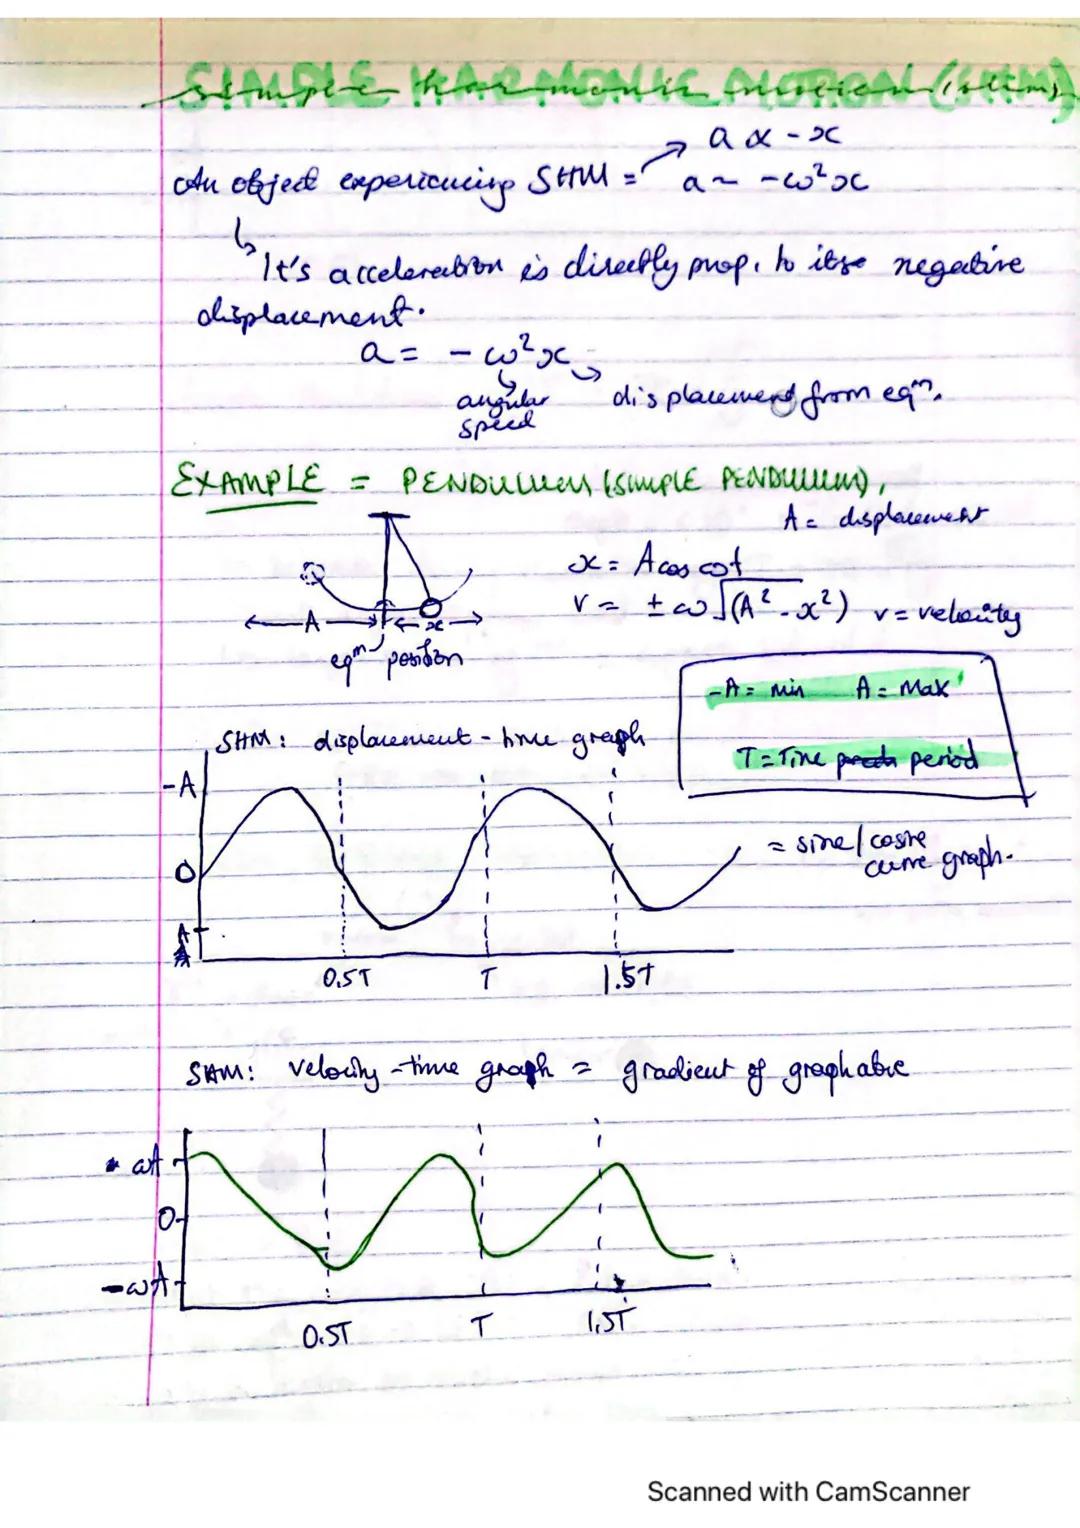 SIMPLE HARMONIC MOTION (SHM)
simple harmonic motion (shm)
a α -x
An object experiencing SHM = a ~ -ω²x
It's acceleration is directly prop. to its negative
displacement.
a = - ω²x
angular displacement from eqᵐ.
speed
EXAMPLE = PENDULUM (SIMPLE PENDULUM),
A = displacement
x = A cos ωt
v = ± ω√(A² - x²) v = velocity
A x
eqᵐ position
-A = min A = Max
T = Time period
SHM: displacement - time graph
-A
0
A
= sine/cosine
curve graph.
0.5T T 1.5T
SHM: velocity - time graph = gradient of graph above
ωA
0
-ωA
0.5T T 1.5T
Scanned with CamScanner